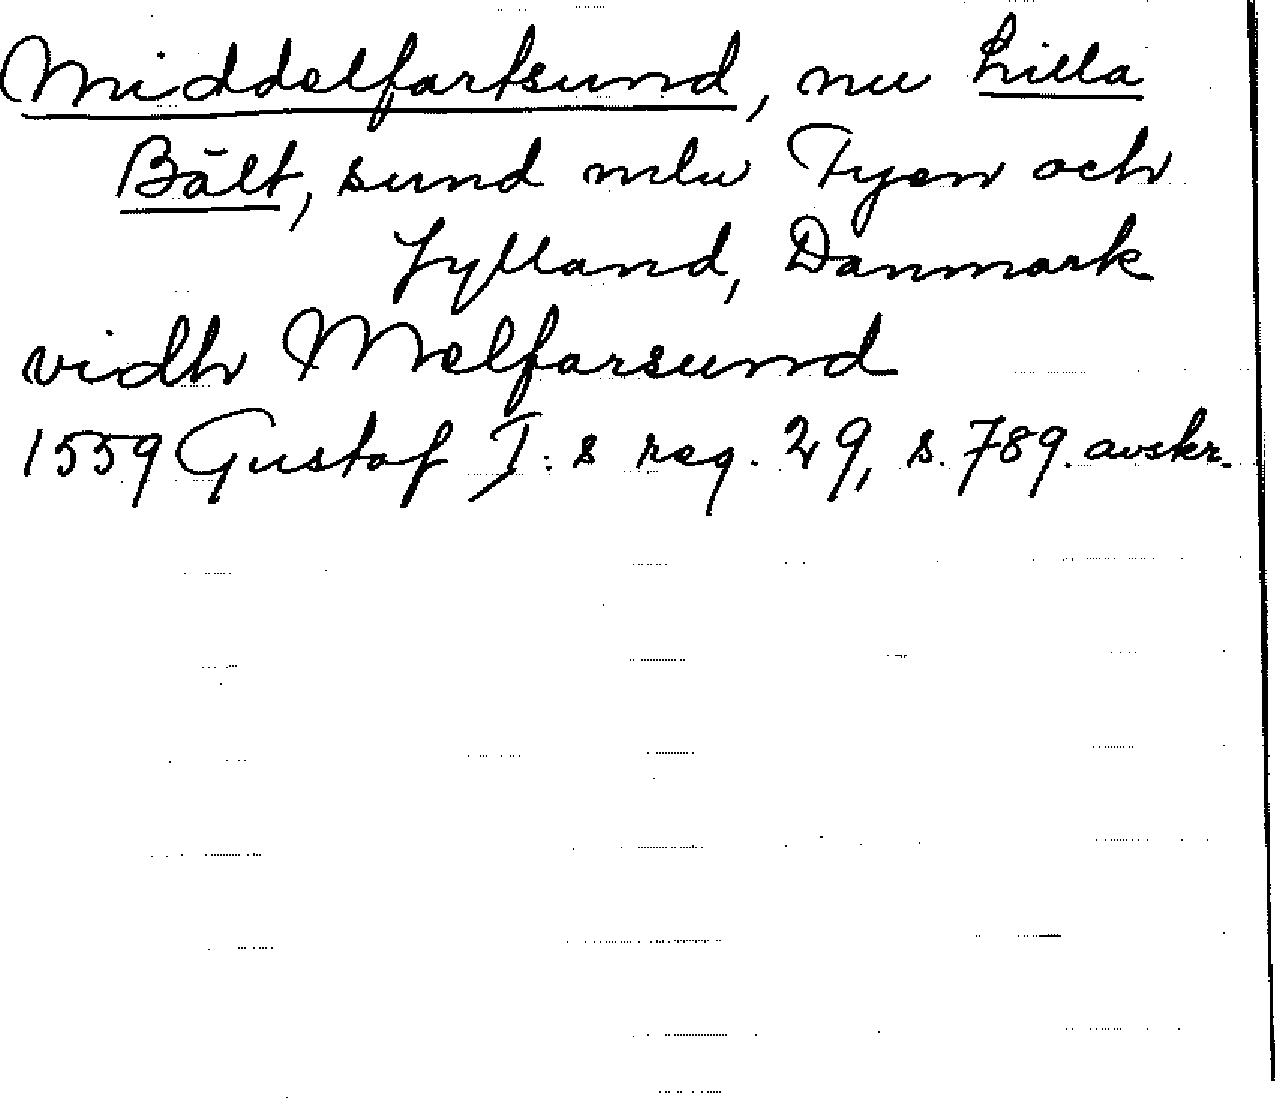 Middelfartsund, nu Lilla
Bält, sund mlu Fyen och
Jylland, Danmark
vidh Melfarsund
1559 Gustof I:s reg. 29, s. 789. avskr.